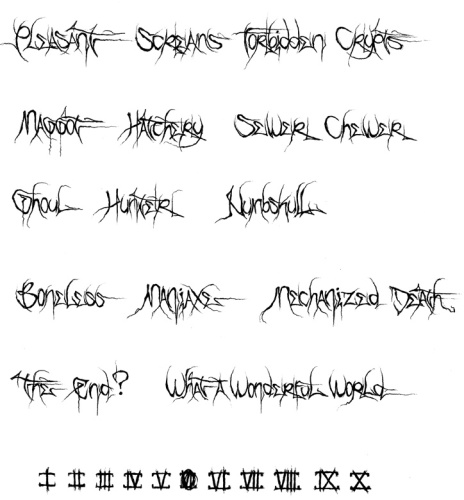 Pleasant Screams Forbidden Crypts
Maggot Hatchery Sewer Chewer
Ghoul Hunter Numbskull
Boneless Maniaxe Mechanized Death
"The End? What A Wonderful World
I II III IV V VI VII VIII IX X